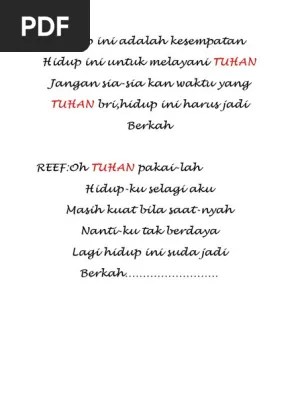 PDF
ini adalah kesempatan
Hidup ini untuk melayani TUHAN
Jangan sia-sia kan waktu yang
TUHAN bri,hidup ini harus jadi
Berkah
REEF:Oh TUHAN pakai-lah
Hidup-ku selagi aku
Masih kuat bila saat-nyah
Nanti-ku tak berdaya
Lagi hidup ini suda jadi
Berkah..........................